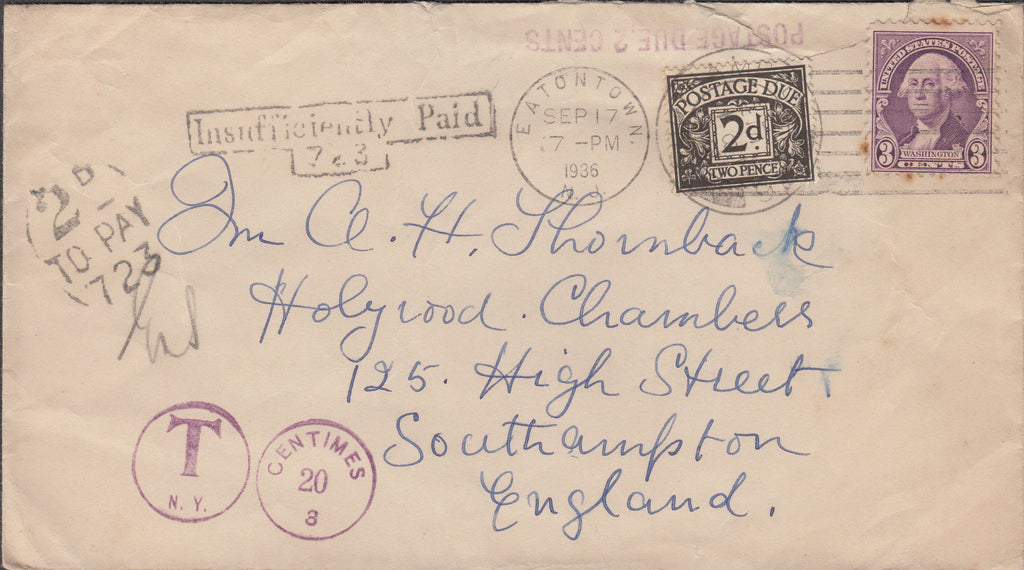 POSTAGE DUE 2 CENTS
UNITED STATES POSTAGE
3 WASHINGTON 3
CENTS
POSTAGE DUE
2d.
TWO PENCE
EATONTOWN
SEP 17
7 - PM
1936
N.J.
Insufficiently Paid
723
2D
TO PAY
723
A. H. Thornback
Holyrood. Chambers
125. High Street
Southampton
England.
T
N. Y.
CENTIMES
20
3